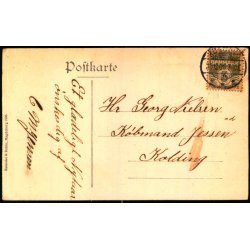 Postkarte
Et glædeligt Nytaar
ønskes dig af
Hr Georg Nielsen
Købmand Jessen
Kolding